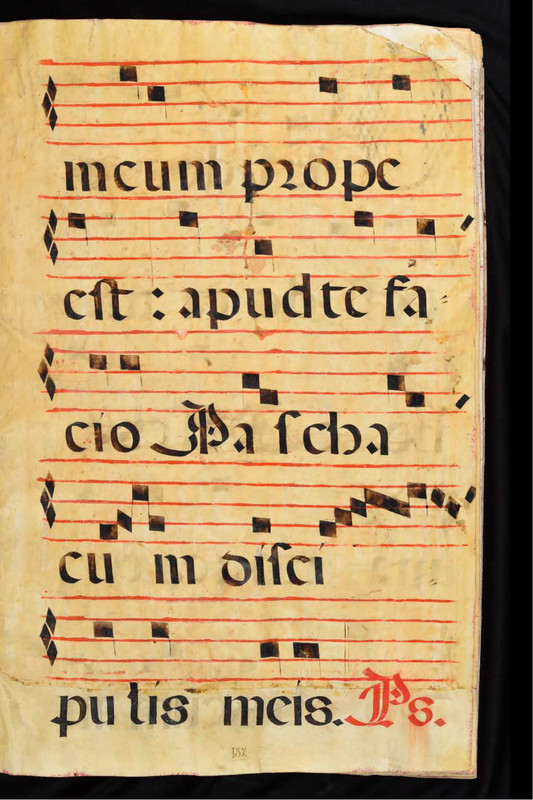 meum prope
est : apud te fa-
cio Pascha
cum disci
pulis meis. Ps.